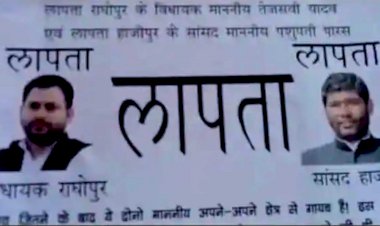 लापता राघोपुर के विधायक माननीय तेजसवी यादव
एवं लापता हाजीपुर की सांसद माननीय पशुपती पारस
लापता
लापता
लापता
धायक राघोपुर
सांसद हाज
जितने के बाद ये दोनो माननीय अपने-अपने क्षेत्र से गायब है। इस